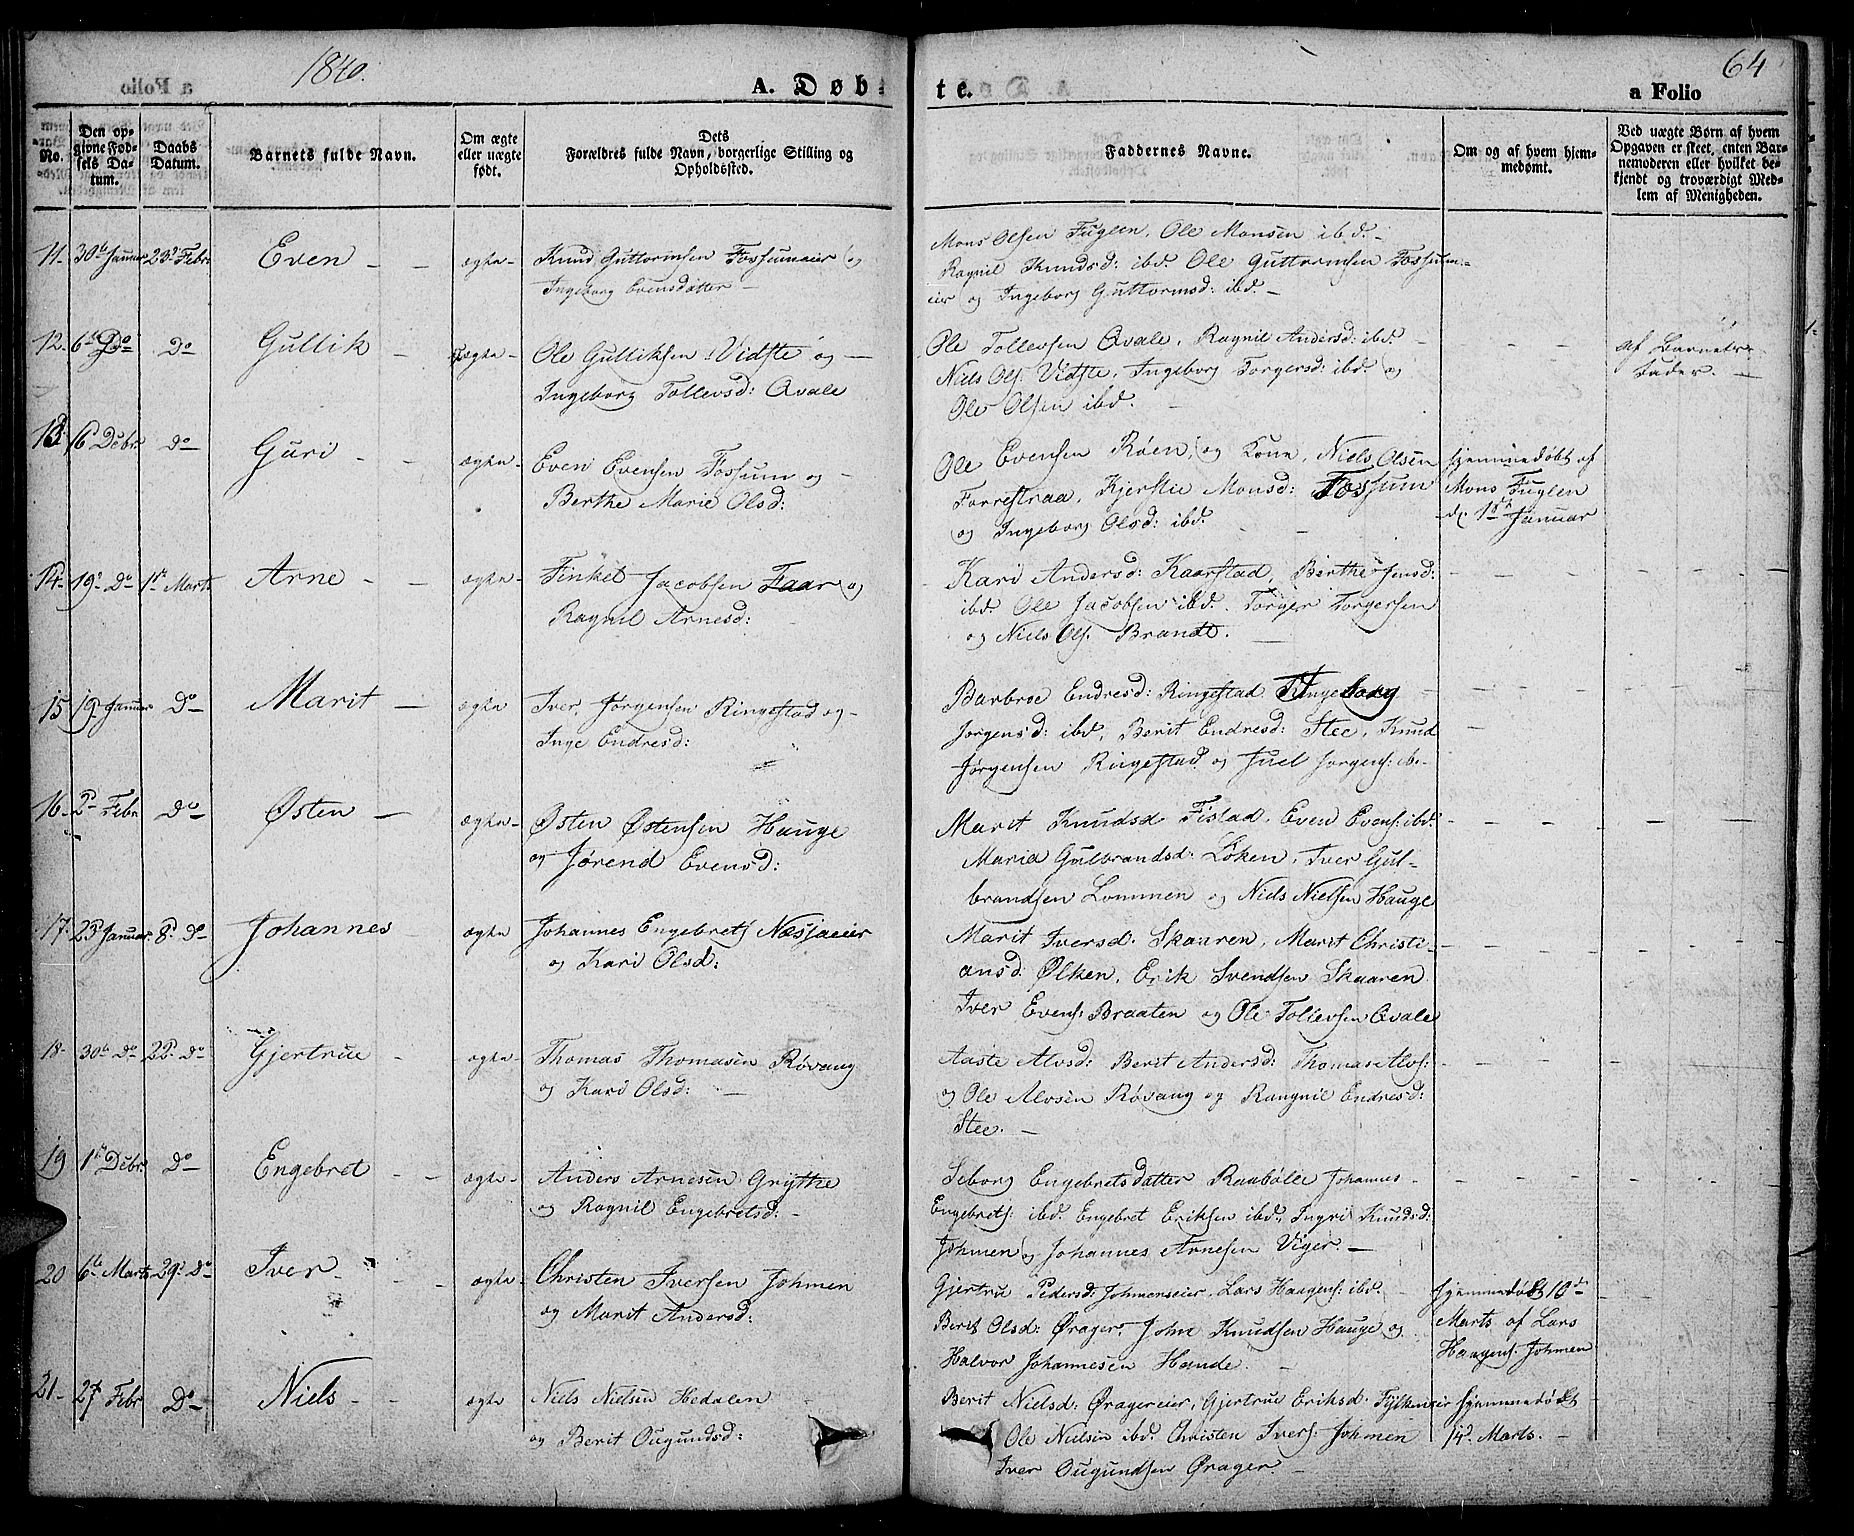 1840.
A. Døbte.
64
a Folio
No.
Den opgivne Fødsels Datum.
Daabs Datum.
Barnets fulde Navn.
Om ægte eller uægte født.
Dets Forældres fulde Navn, borgerlige Stilling og Opholdsted.
Faddernes Navne.
Om og af hvem hjemmedømt.
Ved uægte Børn af hvem Opgaven er skeet, enten Barnemoderen eller hvilket bekjendt og troværdigt Medlem af Menigheden.
11. 30te Januar 23d Febr. Even - - ægte - Knud Guttormsen Fossumeier og
Ingeborg Evensdatter -
Mons Olsen Fuglen, Ole Monsen ibd. -
Ragnil Knudsd: ibd. Ole Guttormsen Fossum-
eier og Ingeborg Guttormsd: ibd. -
12. 6te Do Do Gullik - ægte - Ole Gulliksen Vidste og -
Ingeborg Tollevsd: Qvale
Ole Tollevsen Qvale, Ragnil Andersd: ibd.
Niels Ols: Vidste, Ingeborg Torgersd: ibd. og
Ole Olsen ibd. -
af Barnets
Fader. -
13. 16d Debr. Do Guri - - ægte - Even Evensen Fossum og -
Berthe Marie Olsd:
Ole Evensen Røen, og Kone, Niels Olsen
Forrestraa, Kjerstie Monsd: Fossum
og Ingeborg Olsd: ibd. - -
hjemmedøbt af
Mons Fuglen
d. 1ste Januar
14. 19d Do 1ste Marts Arne - - ægte - Finkel Jacobsen Faar og
Ragnil Arnesd:
Kari Andersd: Kaarstad, Berthe Jensd:
ibd. Ole Jacobsen ibd. Torger Torgersen
og Niels Ols. Brandt. -
15 19. Januar Do Marit - ægte Iver Jørgensen Ringestad og -
Inge Endresd:
Barbroe Endresd: Ringestad Ingeborg
Jorgensd: ibd, Berit Endresd: Stee, Knud
Jørgensen Ringestad og Juel Jorgens: ibd-
16. 2d Febr. Do Østen - ægte - Østen Østensen Hauge
og Jørend Evensd:
Marit Knudsd Fistad, Even Evens: ibd.
Maria Gulbrandsd: Løken, Iver Gul-
brandsen Lommen og Niels Nielsen Hauge
17. 23d Januar. 8d Do Johannes - ægte Johannes Engebrets Næsjaeier
og Kari Olsd:
Marit Iversd. Skaaren, Marit Christi-
ansd: Ølken, Erik Svendsen Skaaren
Iver Evens: Braaten og Ole Tollevsen Qvale
18. 30te Do 22d Do Gjertrue - ægte - Thomas Thomasen Røvang
og Kari Olsd: -
Aaste Alvsd: Berit Andersd: Thomas Alvs:
og Ole Alvsen Røvang og Rangnil Endresd:
Stee. -
19 1ste Debr. Do Engebret - - ægte - Anders Arnesen Grythe
og Ragnil Engebretsd: -
Seborg Engebretsdatter Raabølle Johannes -
Engebrets: ibd. Engebret Eriksen ibd., Ingri Knudsd:
Johmen og Johannes Arnesen Viger. -
20 6te Marts 29d Do Iver - - ægte - Christen Iversen Johmen
og Marit Andersd:
Gjertru Pedersd: Johmenseier, Lars Haagens: ibd.
Berit Olsd: Ørager, John Knudsen Hauge og
Halvor Johannesen Hande. -
hjemmedøbt 10de
Marts af Lars
Haagens: Johmen
21 27 Febr. Do Niels - ægte Niels Nielsen Hedalen -
og Berit Ougundsd:
Berit Nielsd: Øragereier, Gjertrue Eriksd. Fylkeneier
Ole Nielsen ibd. Christen Ivers: Johmen
Iver Ougundsen Ørager. -
hjemmedøbt
14d. Marts. -